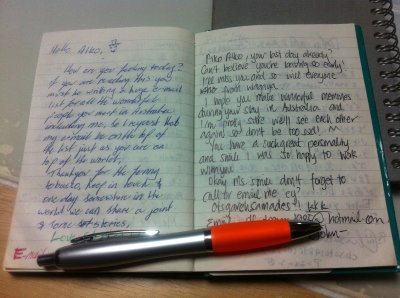 Hello Aiko,
How are you feeling today?
If you are reading this you
must be writing a huge E-mail
list for all the wonderful
people you met in Australia
including me, so I request that
my email be on the top of
the list just as you are on
top of the world,
Thankyou for the funny
tobacco, keep in touch &
one day somewhere in the
world we can share a joint
& some stories,
Love
E-mail
Aiko, your last day already?
Can't believe you're leaving so early!
I'll miss you and so will everyone
else from
I hope you make wonderful memories
during your stay in Australia and
I'm pretty sure we'll see each other
again so don't be too sad! ^^
You have a such great personality
and smile I was so happy to work
Okay Ms. smile don't forget to
call or email me ey?
Otsgarehsamades! kk
Email
@ hotmail.com